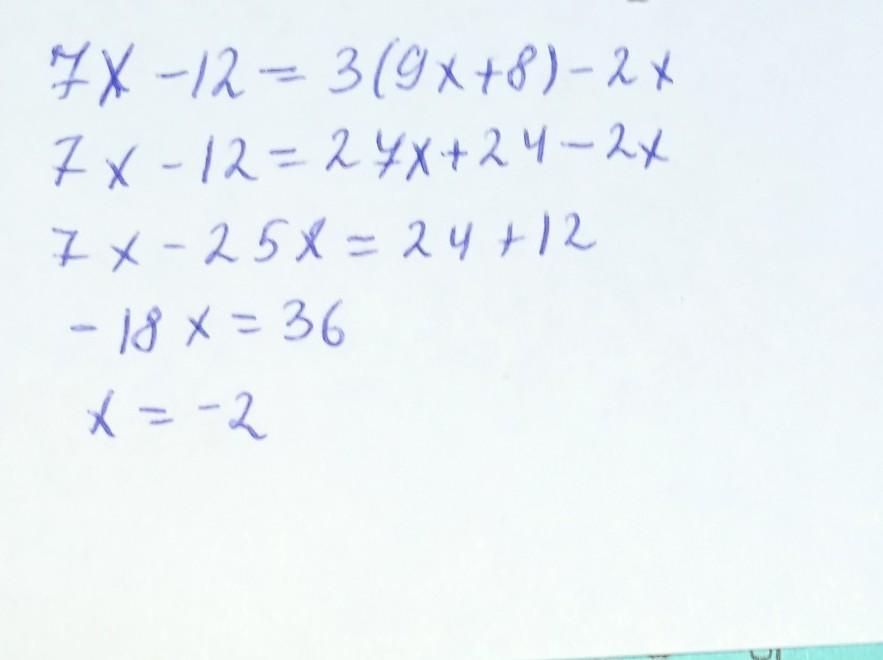 7x - 12 = 3(9x+8) - 2x
7x - 12 = 27x + 24 - 2x
7x - 25x = 24 + 12
- 18x = 36
x = -2